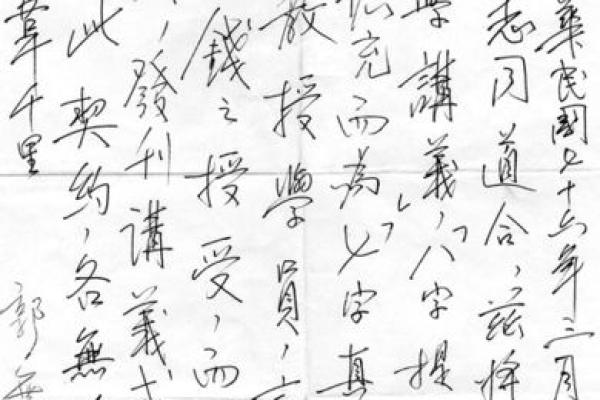 華民國七十六年三月
志同道合，茲將
學講義，「八字提
充而為七字真
教授學員，
錢之授受，而
，發刊講義
此契約，各無
韋千里
郭